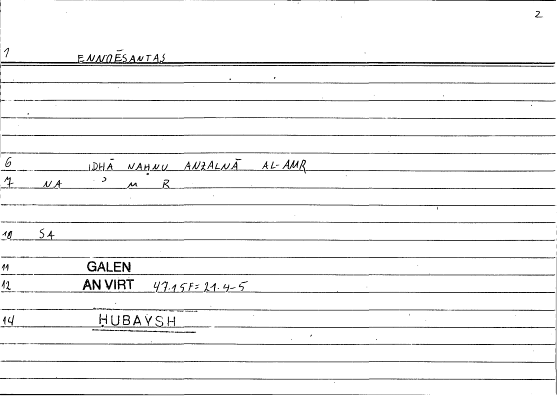 2
1 ENNOĒSANTAS
6 IDHĀ NAḤNU ANZALNĀ AL-AMR
7 NA ʾ M R
10 SA
11 GALEN
12 AN VIRT 47.15F = 21.4-5
14 ḤUBAYSH